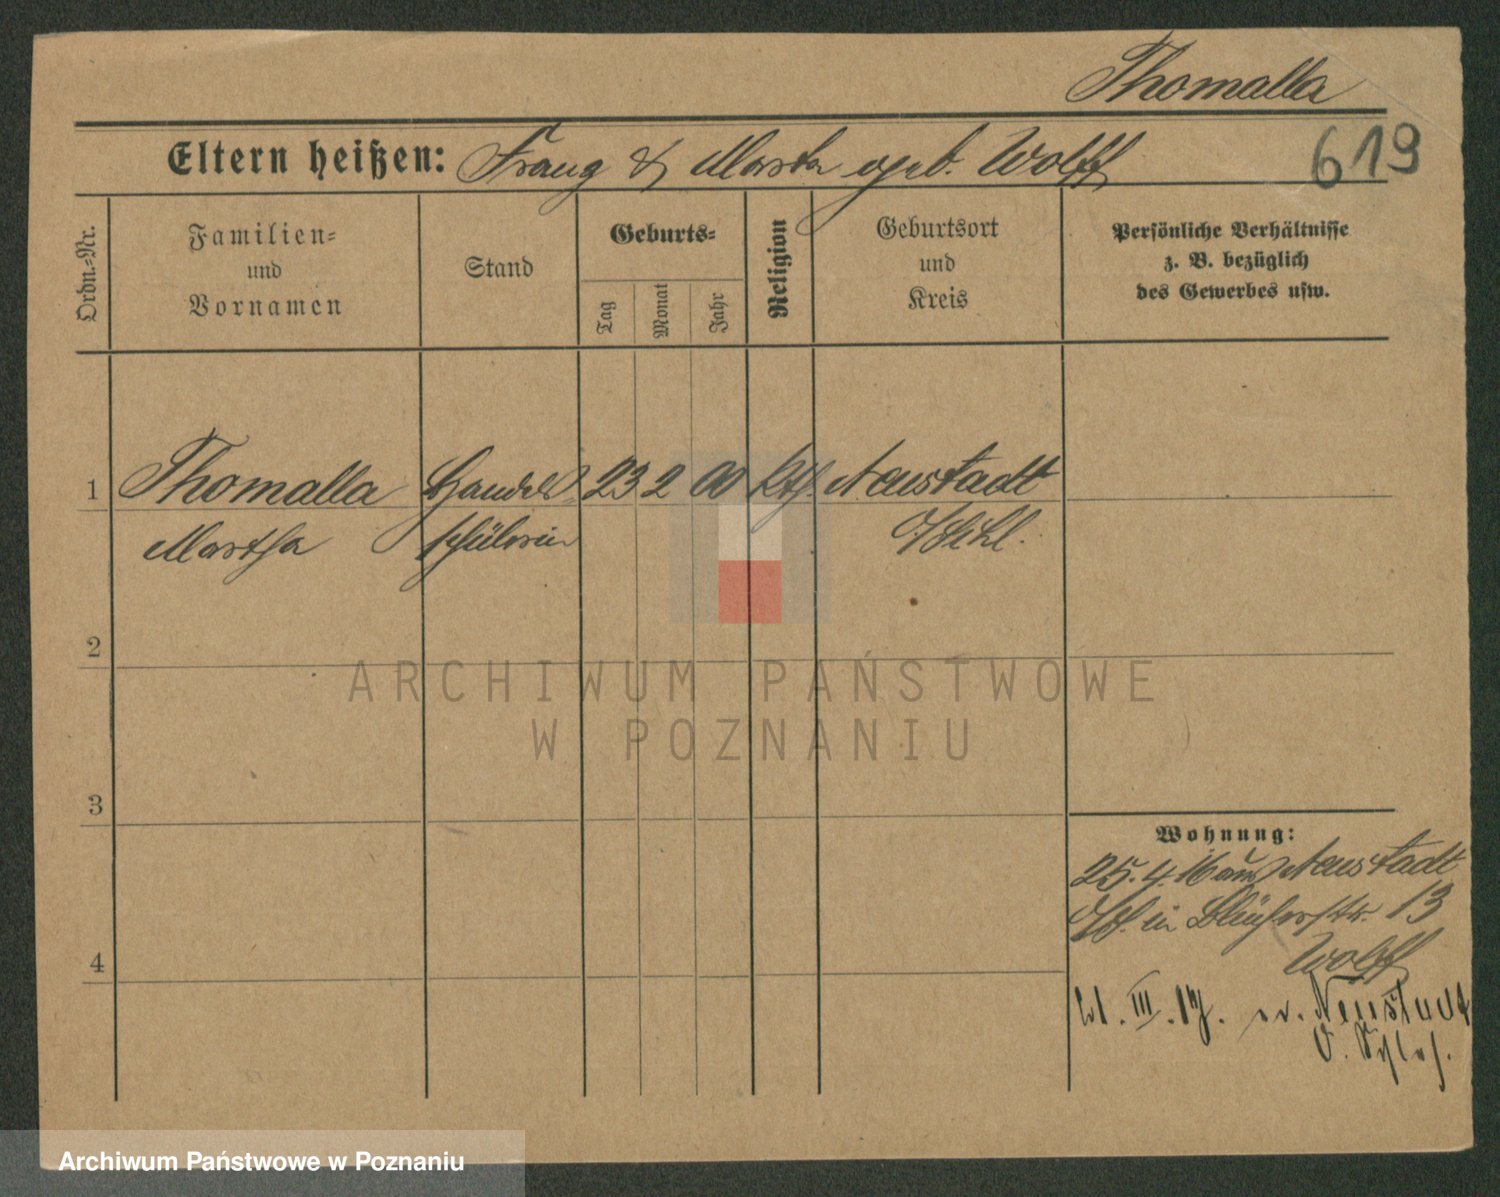 Thomalla
Eltern heißen: Franz & Marta geb. Wolff
619
Ordn.-Nr.
Familien-
und
Vornamen
Stand
Geburts-
Tag
Monat
Jahr
Religion
Geburtsort
und
Kreis
Persönliche Verhältnisse
z. B. bezüglich
des Gewerbes usw.
1
Thomalla
Martha
Handels
schülerin
23 2 00
kth.
Neustadt
O/Schl.
2
3
4
Wohnung:
25.4.16 aus Neustadt
O/S. in Blücherstr. 13
Wolff
21. III. 17. Neustadt
O. Schles.
ARCHIWUM PAŃSTWOWE
W POZNANIU
Archiwum Państwowe w Poznaniu